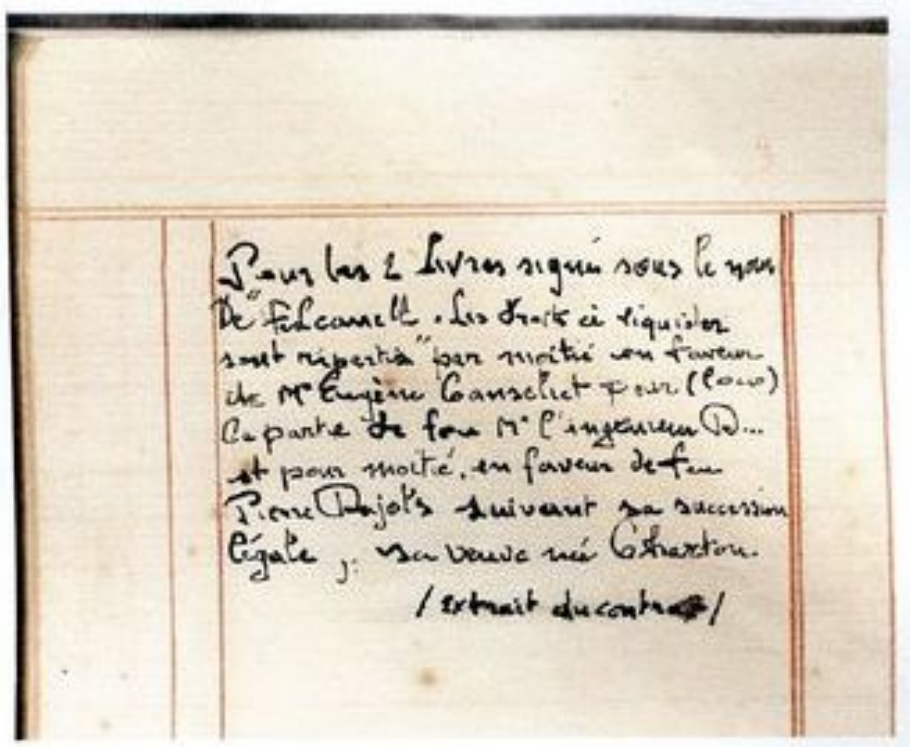 Pour les 2 livres signés sous le nom
De "Fulcanelli. Les droits à liquider
sont répartis" par moitié en faveur
de Mr Eugène Canseliet pour (loco)
la partie de feu Mr l'ingénieur D...
et pour moitié, en faveur de feu
Pierre Dujols suivant sa succession
légale, sa veuve née Charton.
/extrait du contrat/